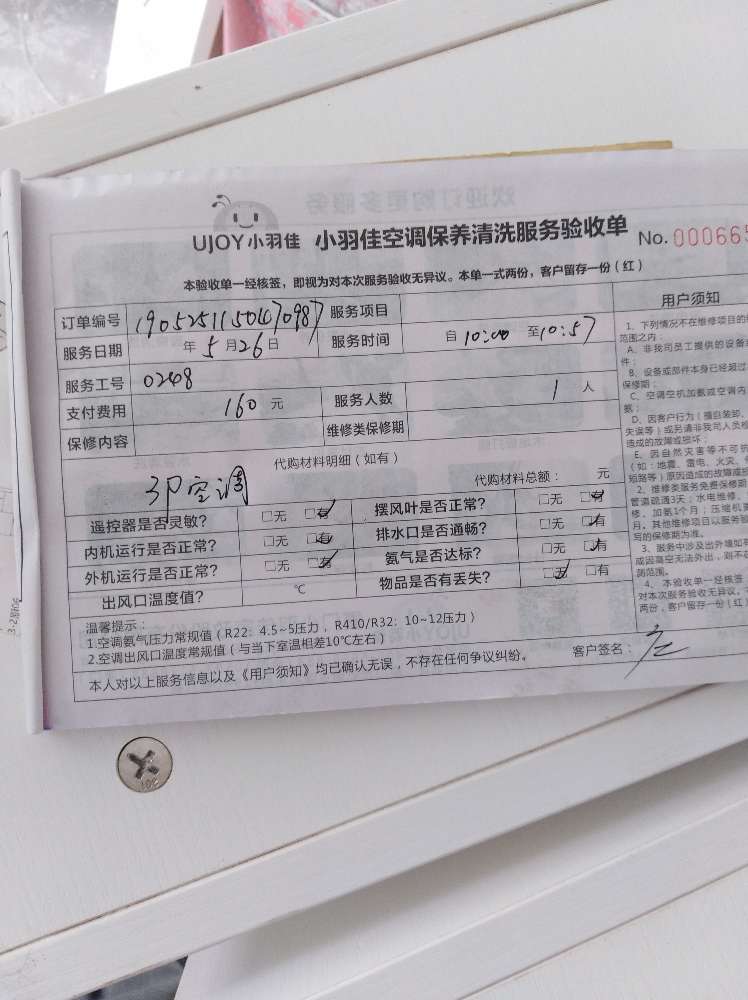 UJOY小羽佳 小羽佳空调保养清洗服务验收单 No. 000665
本验收单一经核签，即视为对本次服务验收无异议。本单一式两份，客户留存一份（红）
订单编号 190525115047098 服务项目
服务日期 年 5 月 26 日 服务时间 自 10:00 至 10:57
服务工号 0248
支付费用 160 元 服务人数 1 人
保修内容 维修类保修期
代购材料明细（如有）
3P空调 代购材料总额： 元
遥控器是否灵敏？ □无 □有 摆风叶是否正常？ □无 □有
内机运行是否正常？ □无 □有 排水口是否通畅？ □无 □有
外机运行是否正常？ □无 □有 氨气是否达标？ □无 □有
出风口温度值？ ℃ 物品是否有丢失？ □无 □有
温馨提示：
1.空调氨气压力常规值（R22：4.5~5压力，R410/R32：10~12压力）
2.空调出风口温度常规值（与当下室温相差10℃左右）
本人对以上服务信息以及《用户须知》均已确认无误，不存在任何争议纠纷。 客户签名：
用户须知
1、下列情况不在维修项目的
范围之内：
A、非我司员工提供的设备
件；
B、设备或部件本身已经超过
保修期；
C、空调空机加氨或空调内
氨；
D、因客户行为（擅自装卸、
失误等）或另请非我司人员
造成的故障或损坏；
E、因自然灾害等不可抗
（如：地震、雷电、火灾、
短路等）原因造成的故障或
2、维修类服务免费保修期
管道疏通3天；水电维修、
修、加氨1个月；压缩机
月。其他维修项目以服务
写的保修期为准。
3、服务中涉及出外墙如
成因高空无法外出，则不
测范围。
4、本验收单一经核签，
对本次服务验收无异议。
两份，客户留存一份（红）